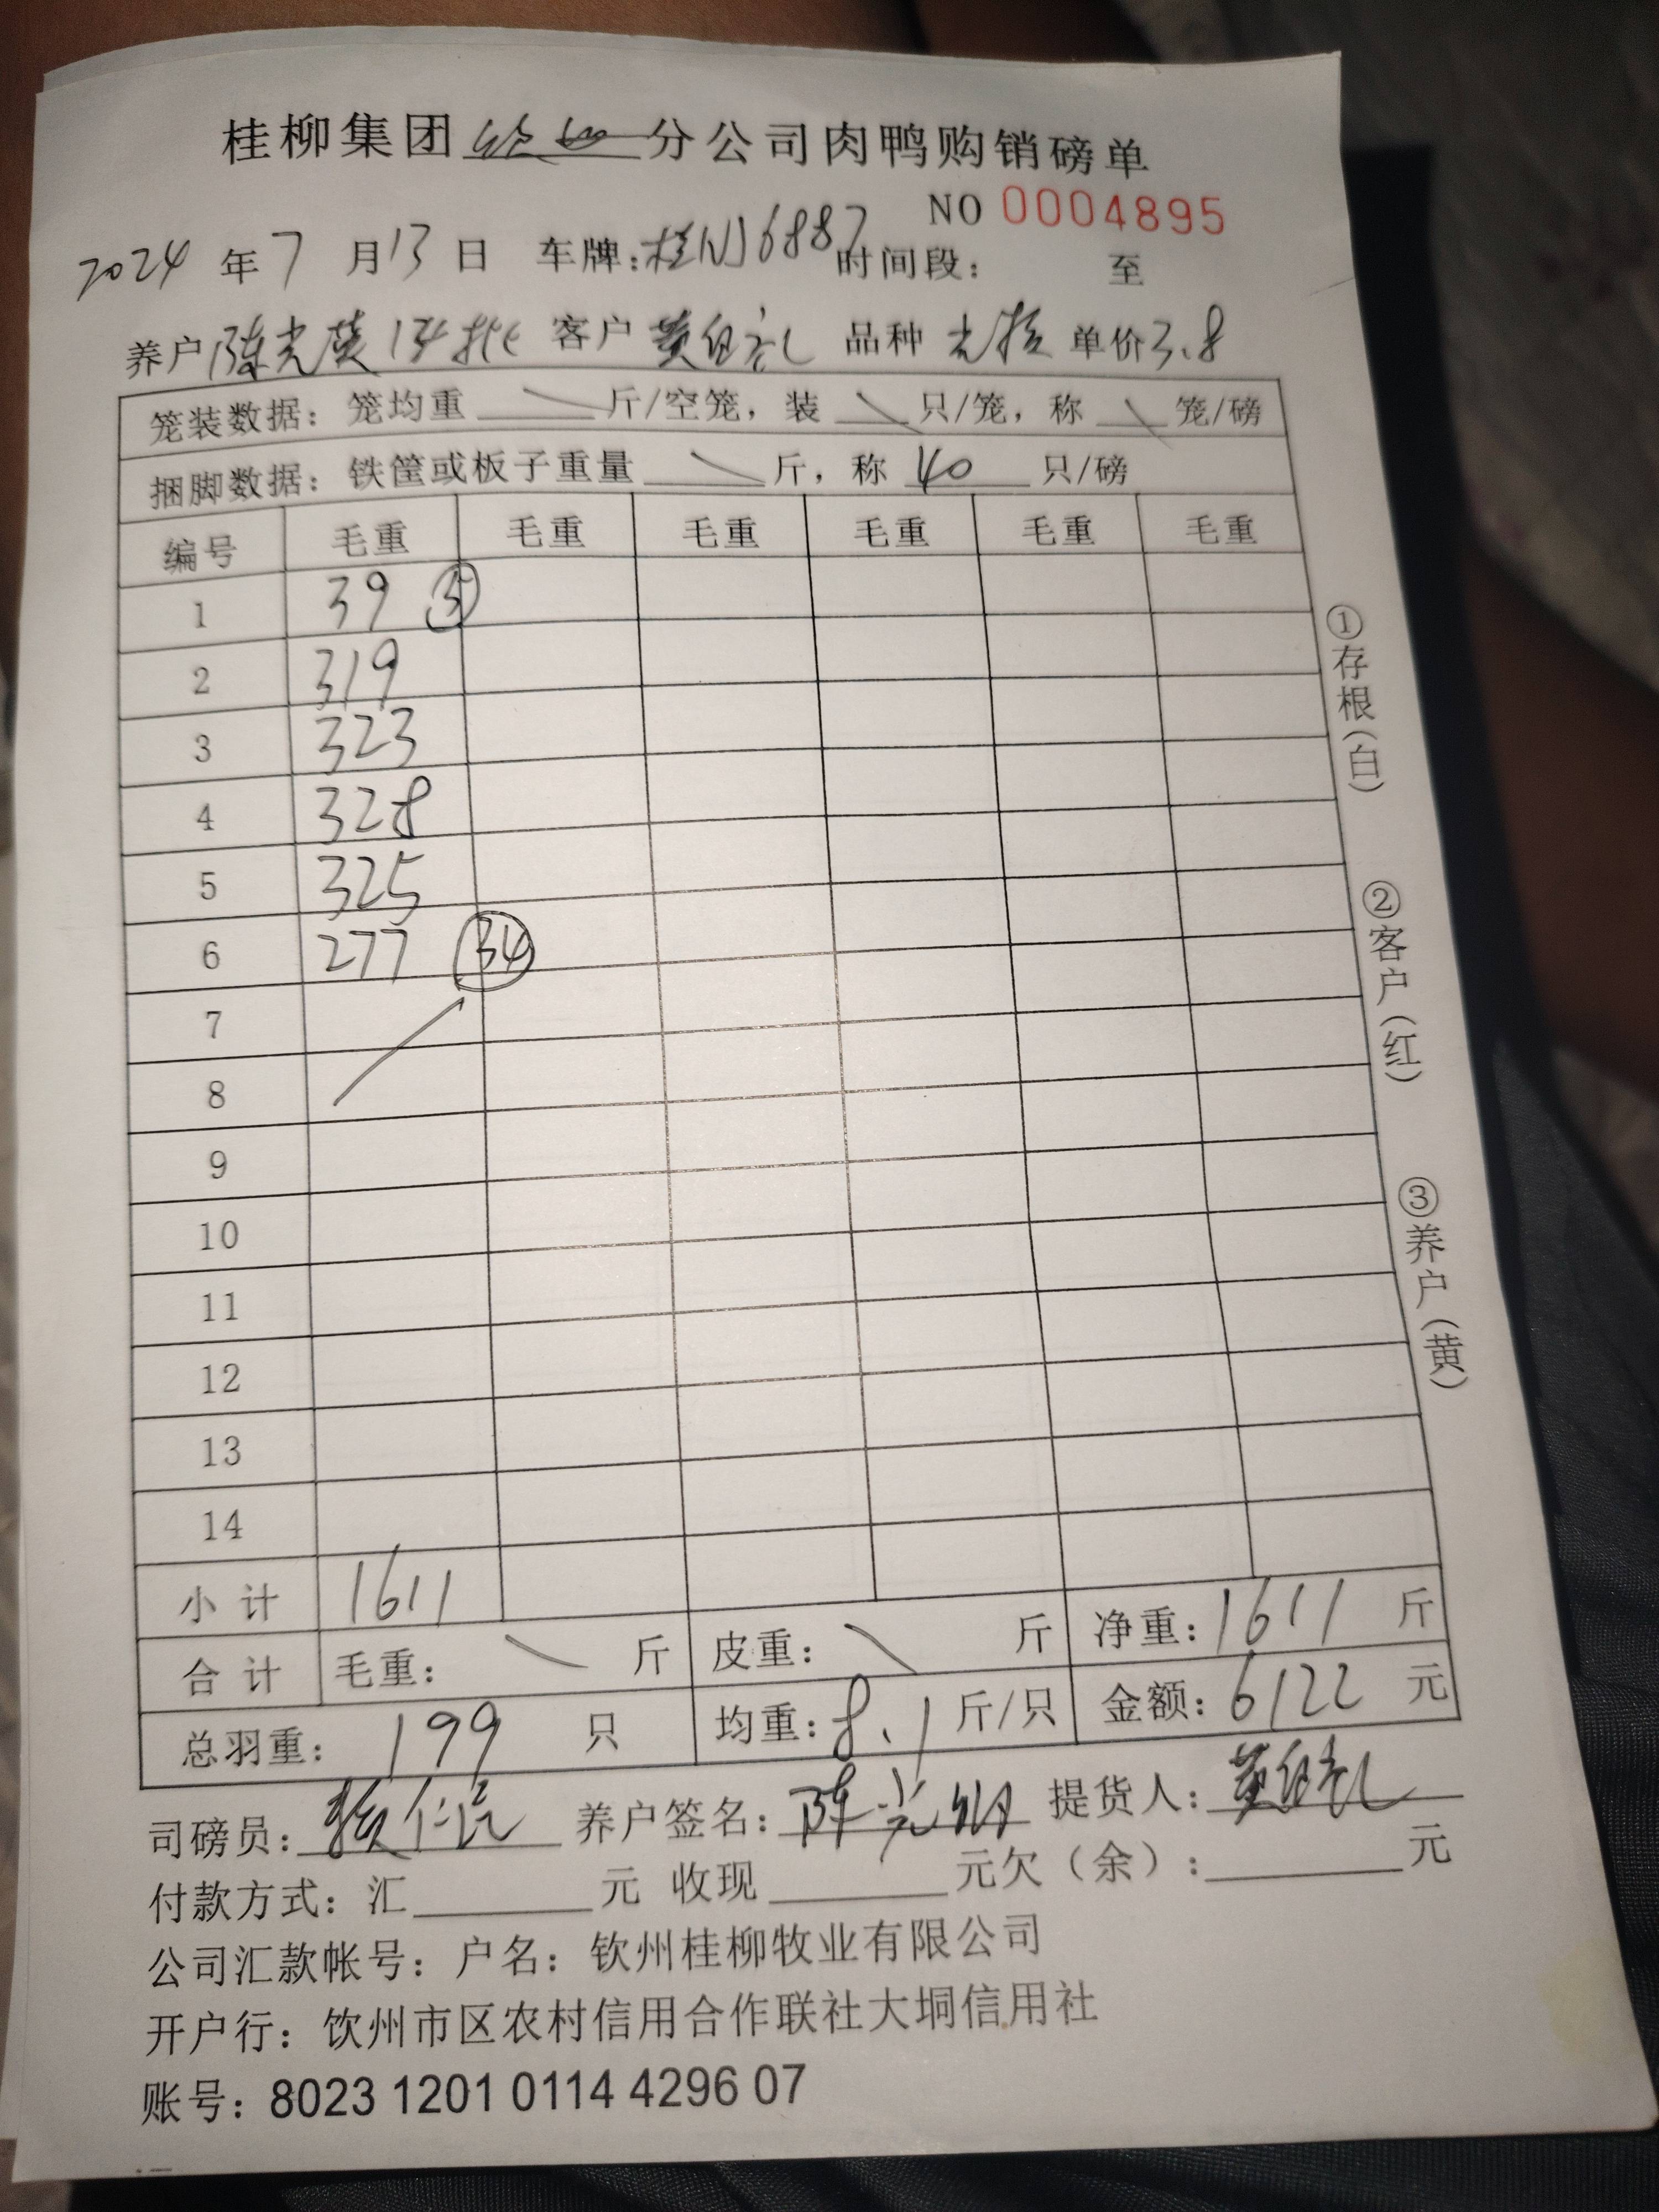 桂柳集团 分公司肉鸭购销磅单
NO 0004895
2024 年 7 月 13 日 车牌:桂NJ6887 时间段: 至
养户 陈光 14批 客户 黄 礼 品种 单价 3.8
笼装数据: 笼均重 斤/空笼, 装 只/笼, 称 笼/磅
捆脚数据: 铁筐或板子重量 斤, 称 40 只/磅
编号 毛重 毛重 毛重 毛重 毛重 毛重
1 39 ⑤
2 319
3 323
4 328
5 325
6 277 ㉞
7
8
9
10
11
12
13
14
小 计 1611
合 计 毛重: 斤 皮重: 斤 净重: 1611 斤
总羽重: 199 只 均重: 8.1 斤/只 金额: 6122 元
司磅员: 养户签名: 陈光 提货人: 黄 礼
付款方式: 汇 元 收现 元欠(余): 元
公司汇款帐号: 户名: 钦州桂柳牧业有限公司
开户行: 饮州市区农村信用合作联社大垌信用社
账号: 8023 1201 0114 4296 07
①存根(白)
②客户(红)
③养户(黄)